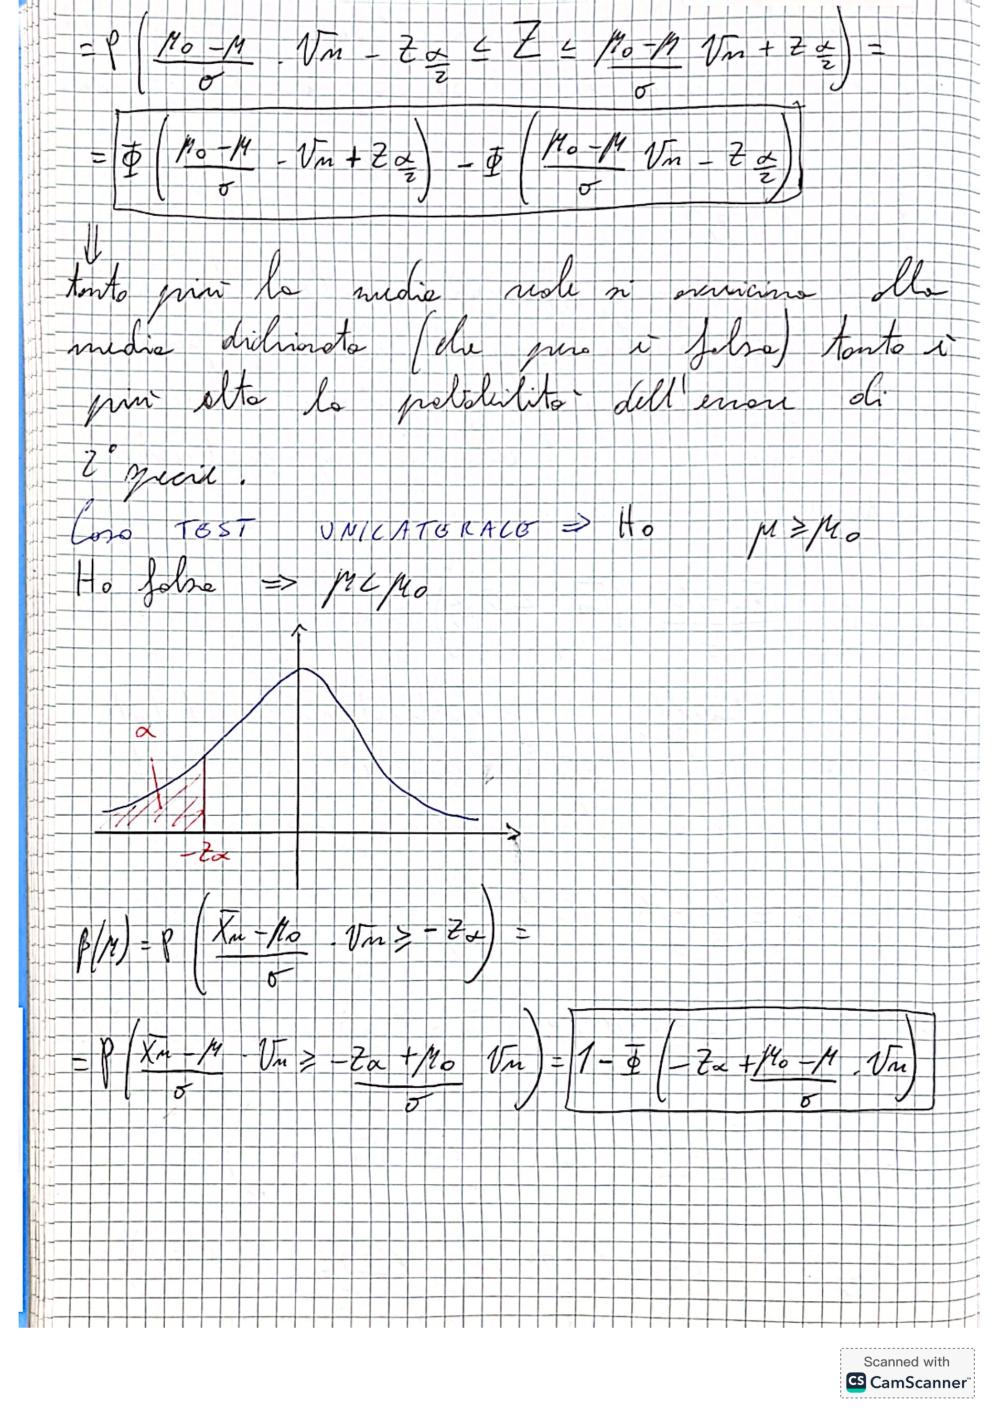 = P ( (μ0 - μ)/σ · √n - Zα/2 ≤ Z ≤ (μ0 - μ)/σ √n + Zα/2 ) =
= Φ ( (μ0 - μ)/σ · √n + Zα/2 ) - Φ ( (μ0 - μ)/σ √n - Zα/2 )
⇓
tanto più la media reale si avvicina alla
media dichiarata (che però è falsa) tanto è
più alta la probabilità dell'errore di
2° specie.
Caso TEST UNILATERALE ⇒ H0 μ ≥ μ0
H0 falsa ⇒ μ < μ0
α
-Zα
β(μ) = P ( (X̄n - μ0)/σ · √n ≥ -Zα ) =
= P ( (X̄n - μ)/σ · √n ≥ (-Zα + μ0)/σ √n ) = 1 - Φ ( -Zα + (μ0 - μ)/σ · √n )
Scanned with
CS CamScanner